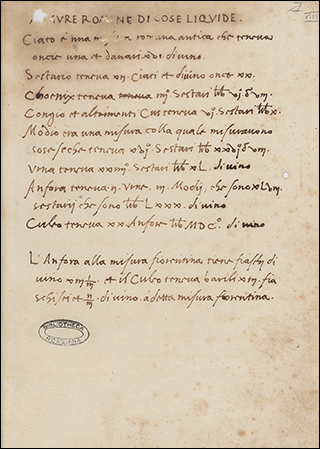 MISURE ROMANE DI COSE LIQUIDE.
Ciato è una misura romana antica che teneva
oncie una et danari di vino.
Sestario teneva xii. Ciati et di vino once xx.
Choenix teneva teneva iiij Sestari
Congio et altrimenti Cus teneva vj. Sestari x.
Modio era una misura colla quale misuravono
cose seche teneva xvj. Sestari
Urna teneva xxiiij Sestari xL. di vino
Anfora teneva ii. Urne. iii. Modij, che sono
sestarij che sono Lxxx. di vino
Culeo teneva xx Anfore MDC. di vino
L'Anfora alla misura fiorentina tiene fiaschi di
vino et il Culeo teneva barili xiii. fia
schi sei et di vino. a detta misura fiorentina.
BIBLIOTHECA
ROSSIANA